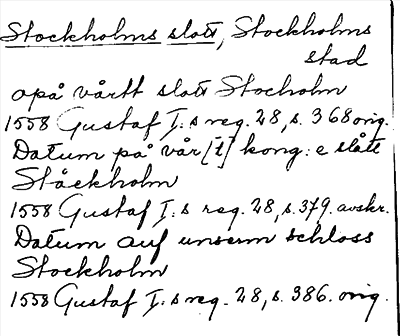 Stockholms slott, Stockholms
stad
opå vårtt slott Stocholm
1558 Gustaf I:s reg. 28, s. 368 orig.
Datum på vår[t] kong:e slått
Ståckholm
1558 Gustaf I:s reg. 28, s. 379. avskr.
Datum auf unserm schloss
Stockholm
1558 Gustaf I:s reg. 28, s. 386. orig.